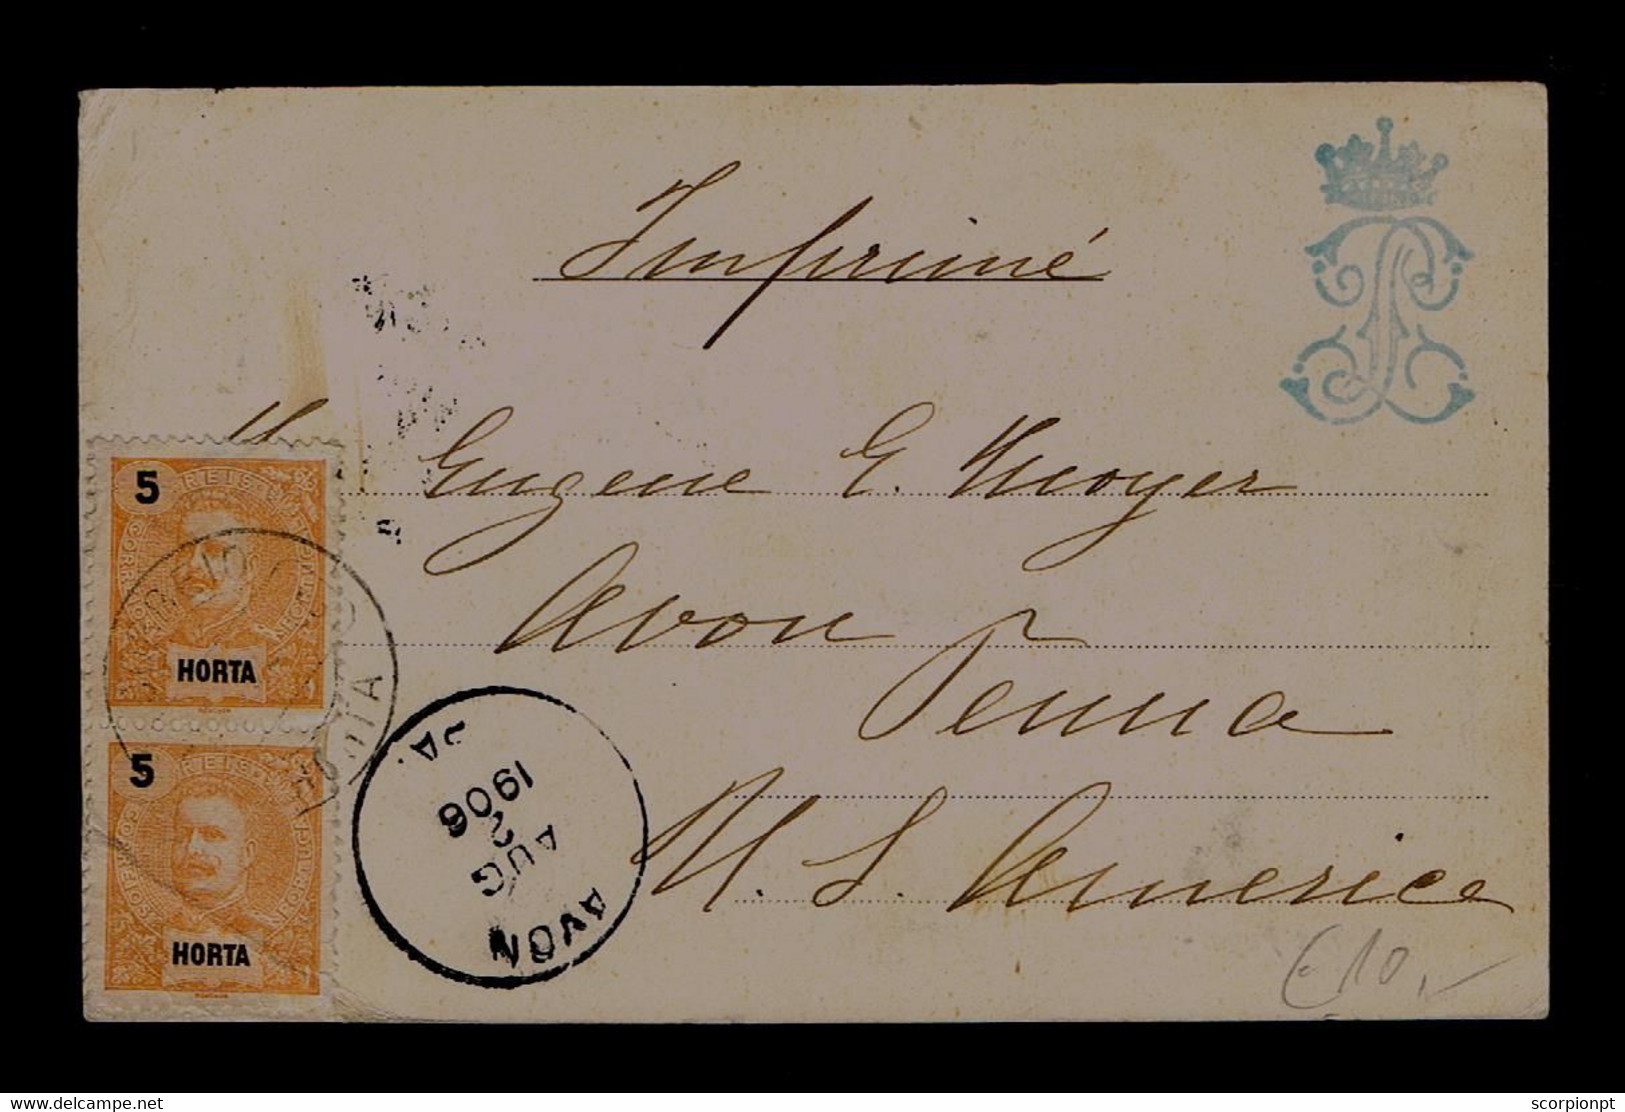 Imprimé
Eugene E. Moyer
Avon
Penna
U. S. America
5
REIS
CORREIOS
HORTA
5
REIS
CORREIOS
HORTA
HORTA
AVON
AUG
2
1906
PA.
€10,-
www.delcampe.net
scorpionpt